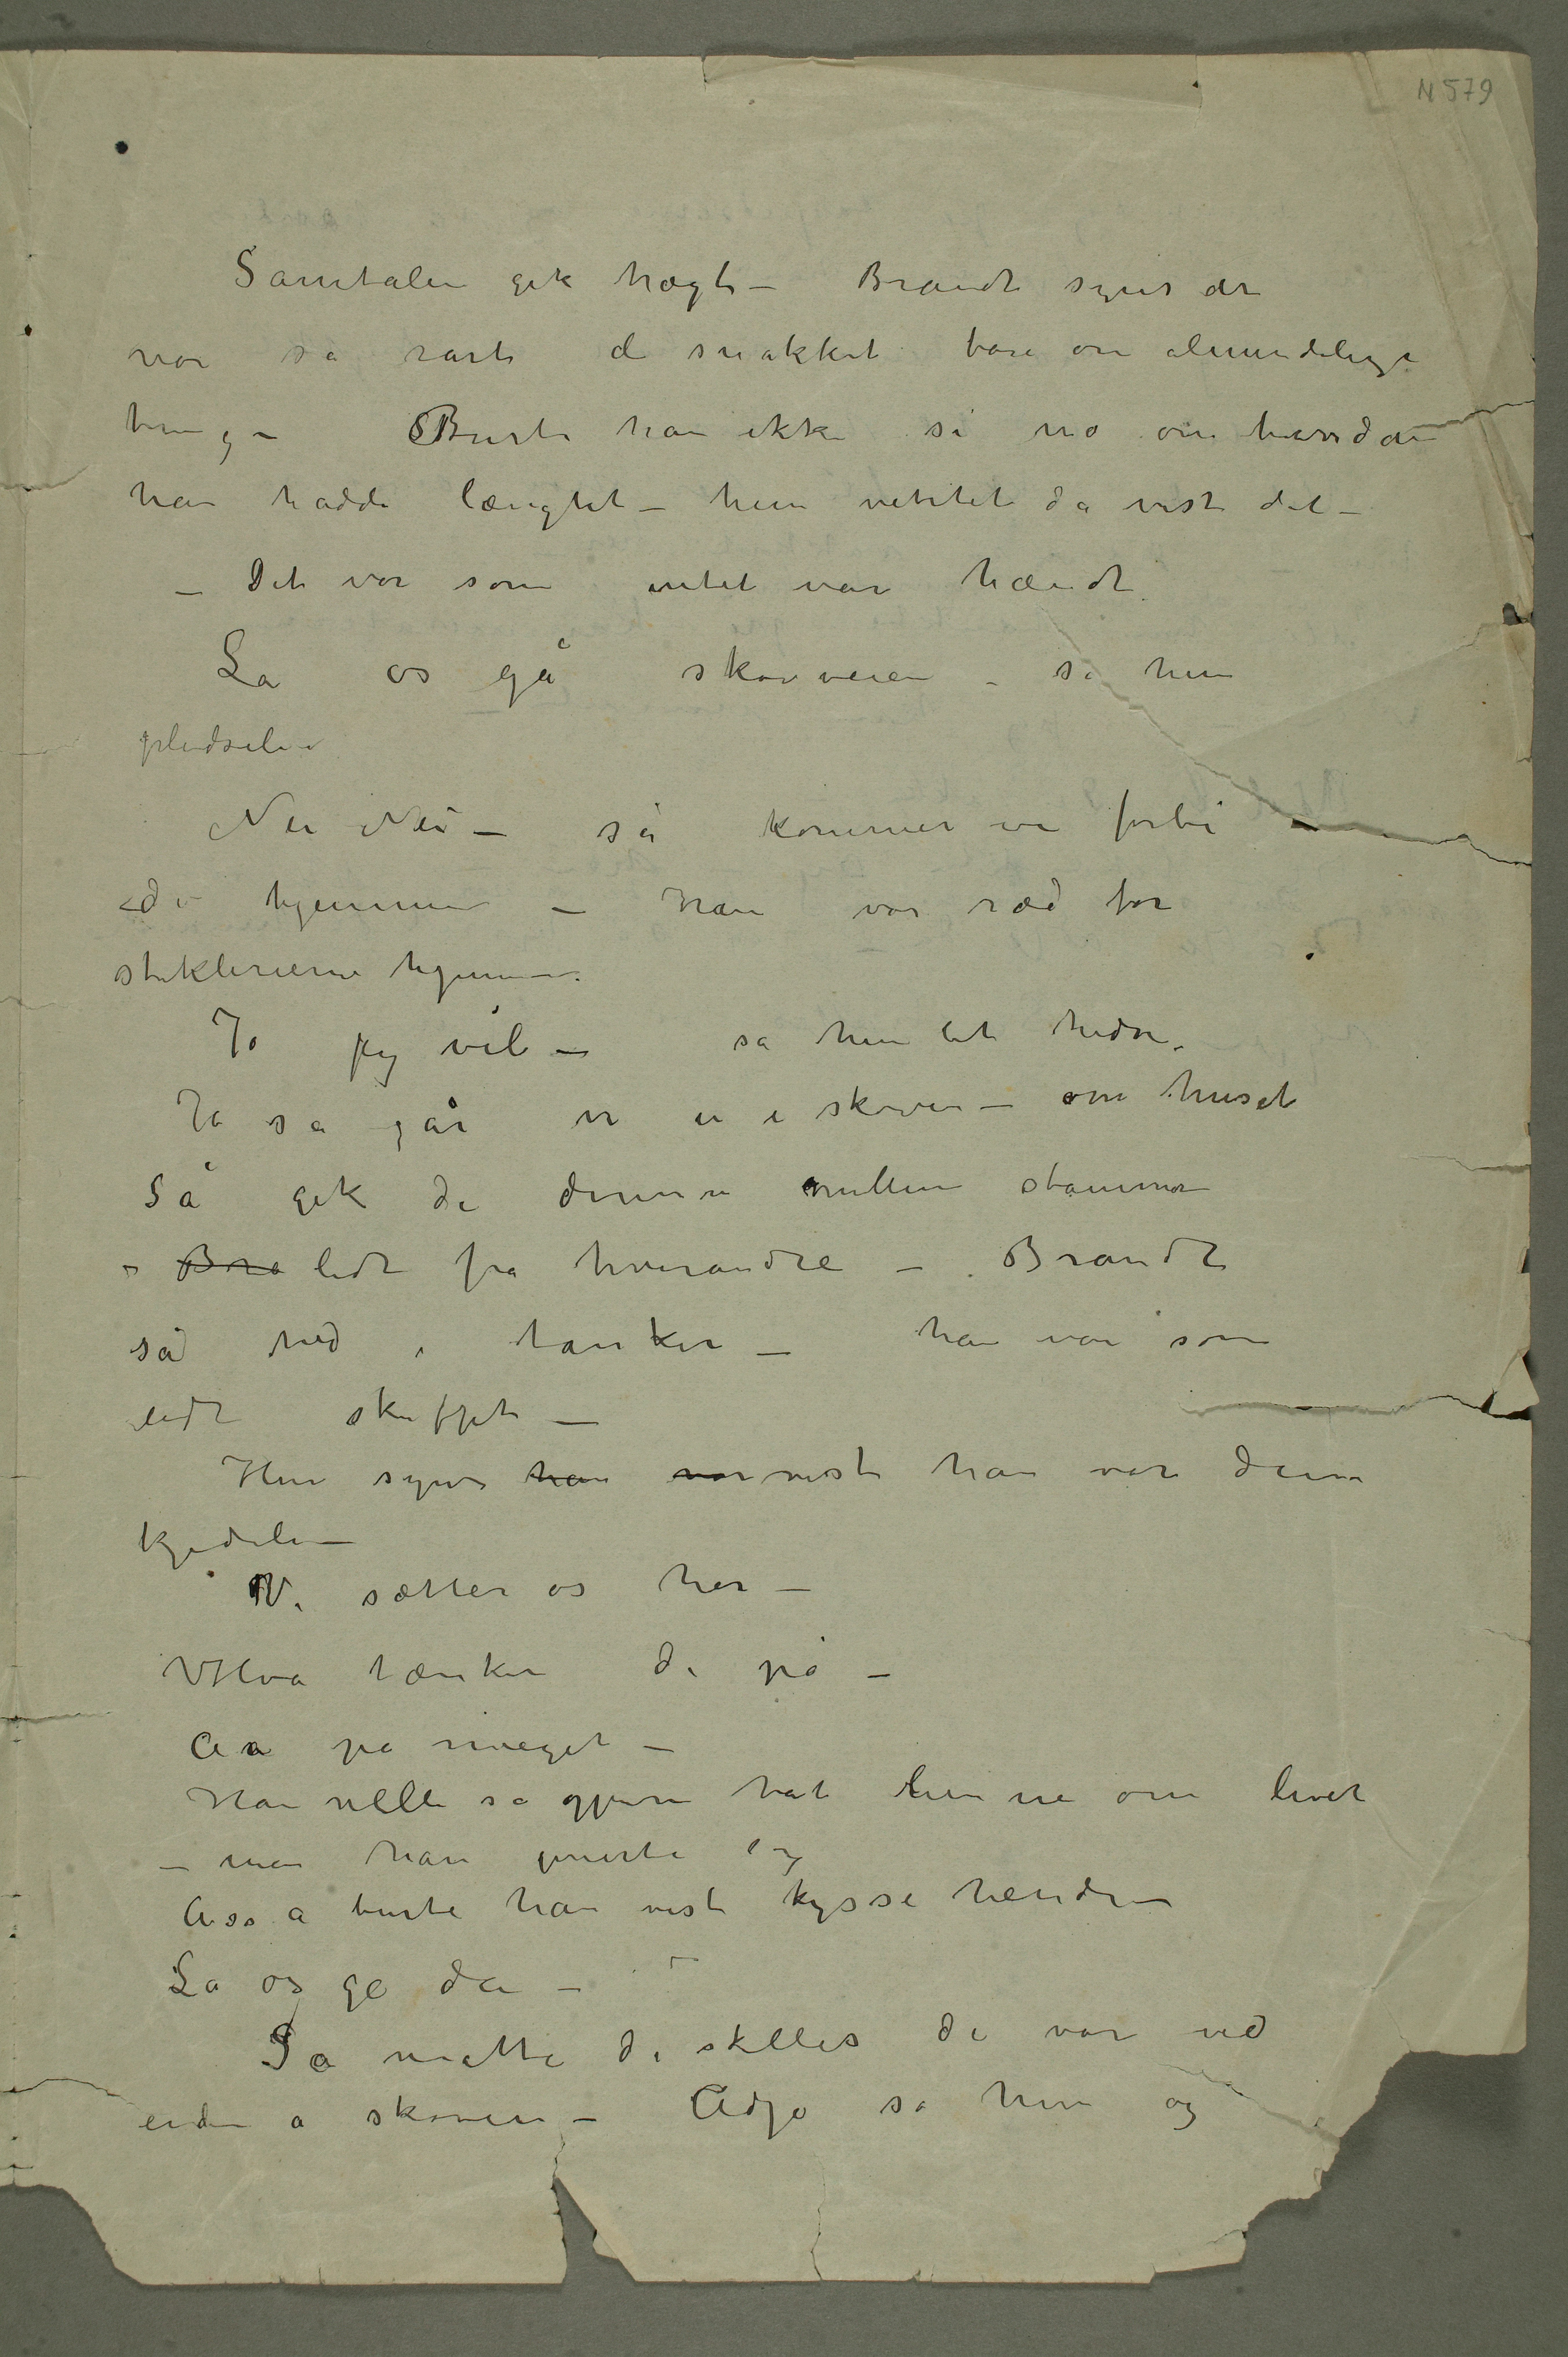 N 579
Samtalen gik trægt – Brandt synes det
var så rart de snakket bare om almindelige
ting – Burte han ikke si no om hvordan
han hadde længtet – hun vetstet da vist det –
– Det var som intet var hændt
La os gå skovveien – sa hun
pludselig
Nei Nei – så kommer vi forbi
de hjemme – Han var ræd for
stiklerierne hjemme.
Jo jeg vil – sa hun lit hidsi.
Ja så går vi in i skoven – om huset
Så gik de derinne mellem stammene
– Bra lidt fra hverandre – Brandt
så ned i tanker – han var som
lidt skuffet –
Hun synes han var vist han var den
kjedeli –
Vi sætter os her –
Hva tænker De på –
Aa på meget –
Han ville så gjerne tat henne om livet
– men han generte sig
Asså burte han vist kysse hende –
La os gå da –
Så måtte de skilles de var ved
enden a skoven – Adjø sa hun og